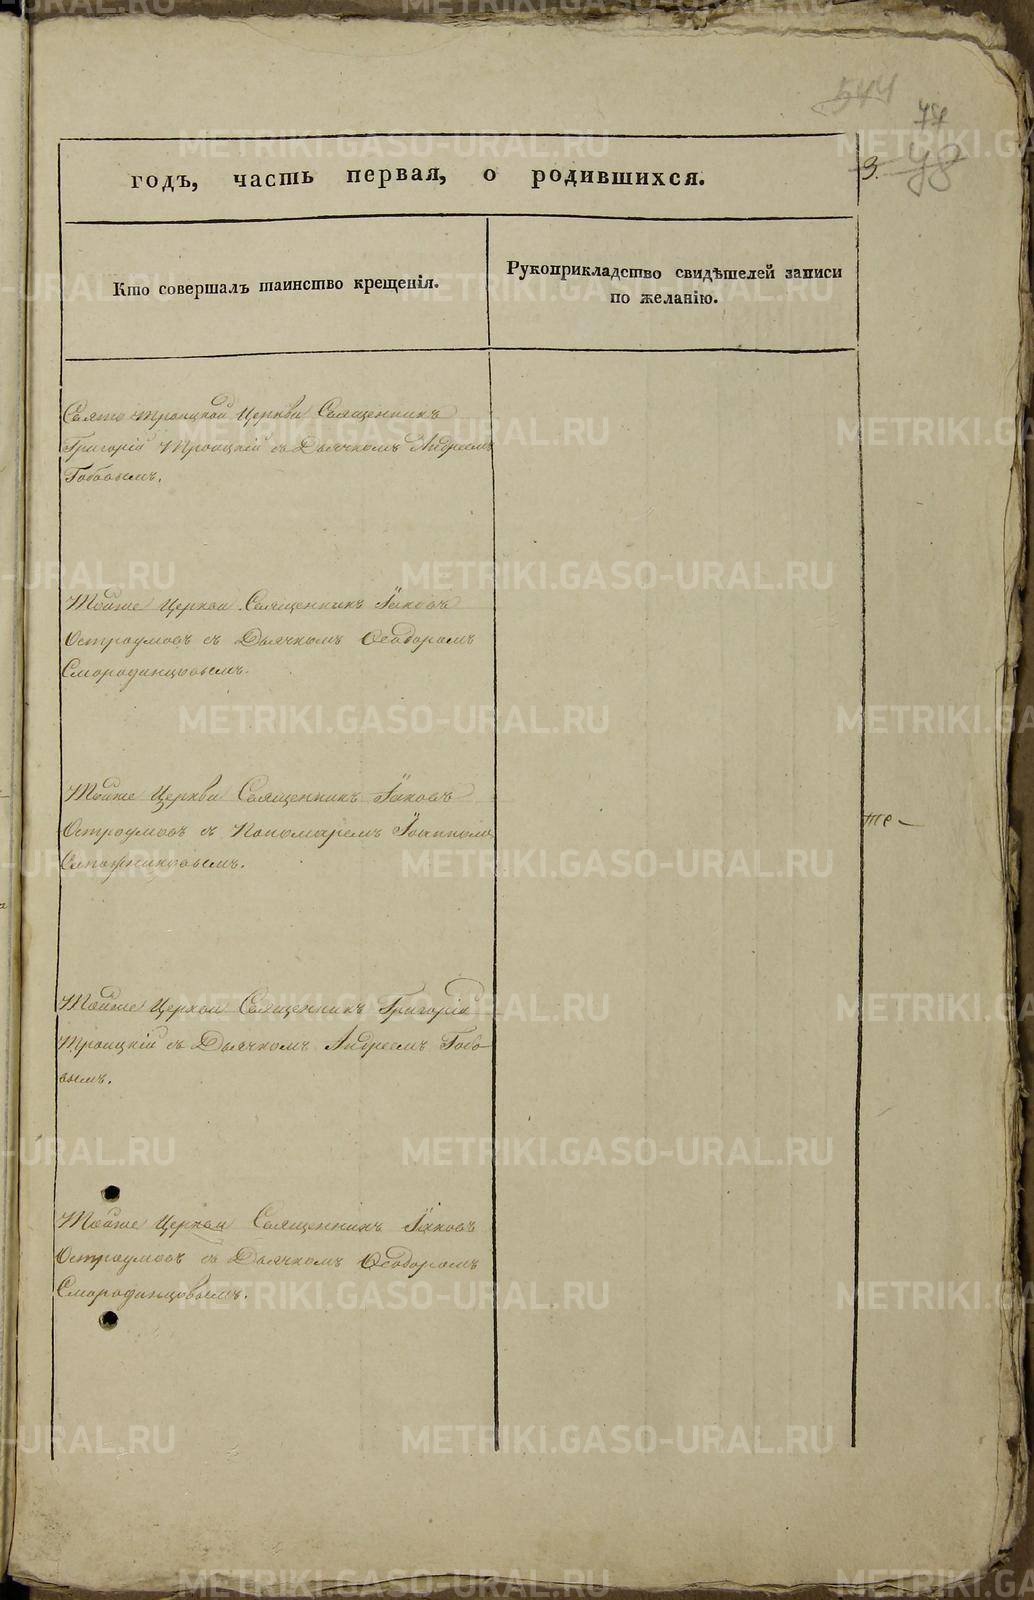 544
77
98
3.
годъ, часть первая, о родившихся.
Кто совершалъ таинство крещенія.
Рукоприкладство свидѣтелей записи
по желанію.
Свято Троицкой Церкви Священникъ
Григорій Троицкій съ Дьячкомъ Андреемъ
Тойже Церкви Священникъ Іаковъ
Остроумовъ съ Дьячкомъ Ѳеодоромъ
Смородинцовымъ.
Тойже Церкви Священникъ Іаковъ
Остроумовъ съ Пономаремъ Іоанномъ
Тойже Церкви Священникъ Григорій
Троицкій съ Дьячкомъ Андреемъ
Тойже Церкви Священникъ Іаковъ
Остроумовъ съ Дьячкомъ Ѳеодоромъ
Смородинцовымъ.
METRIKI.GASO-URAL.RU